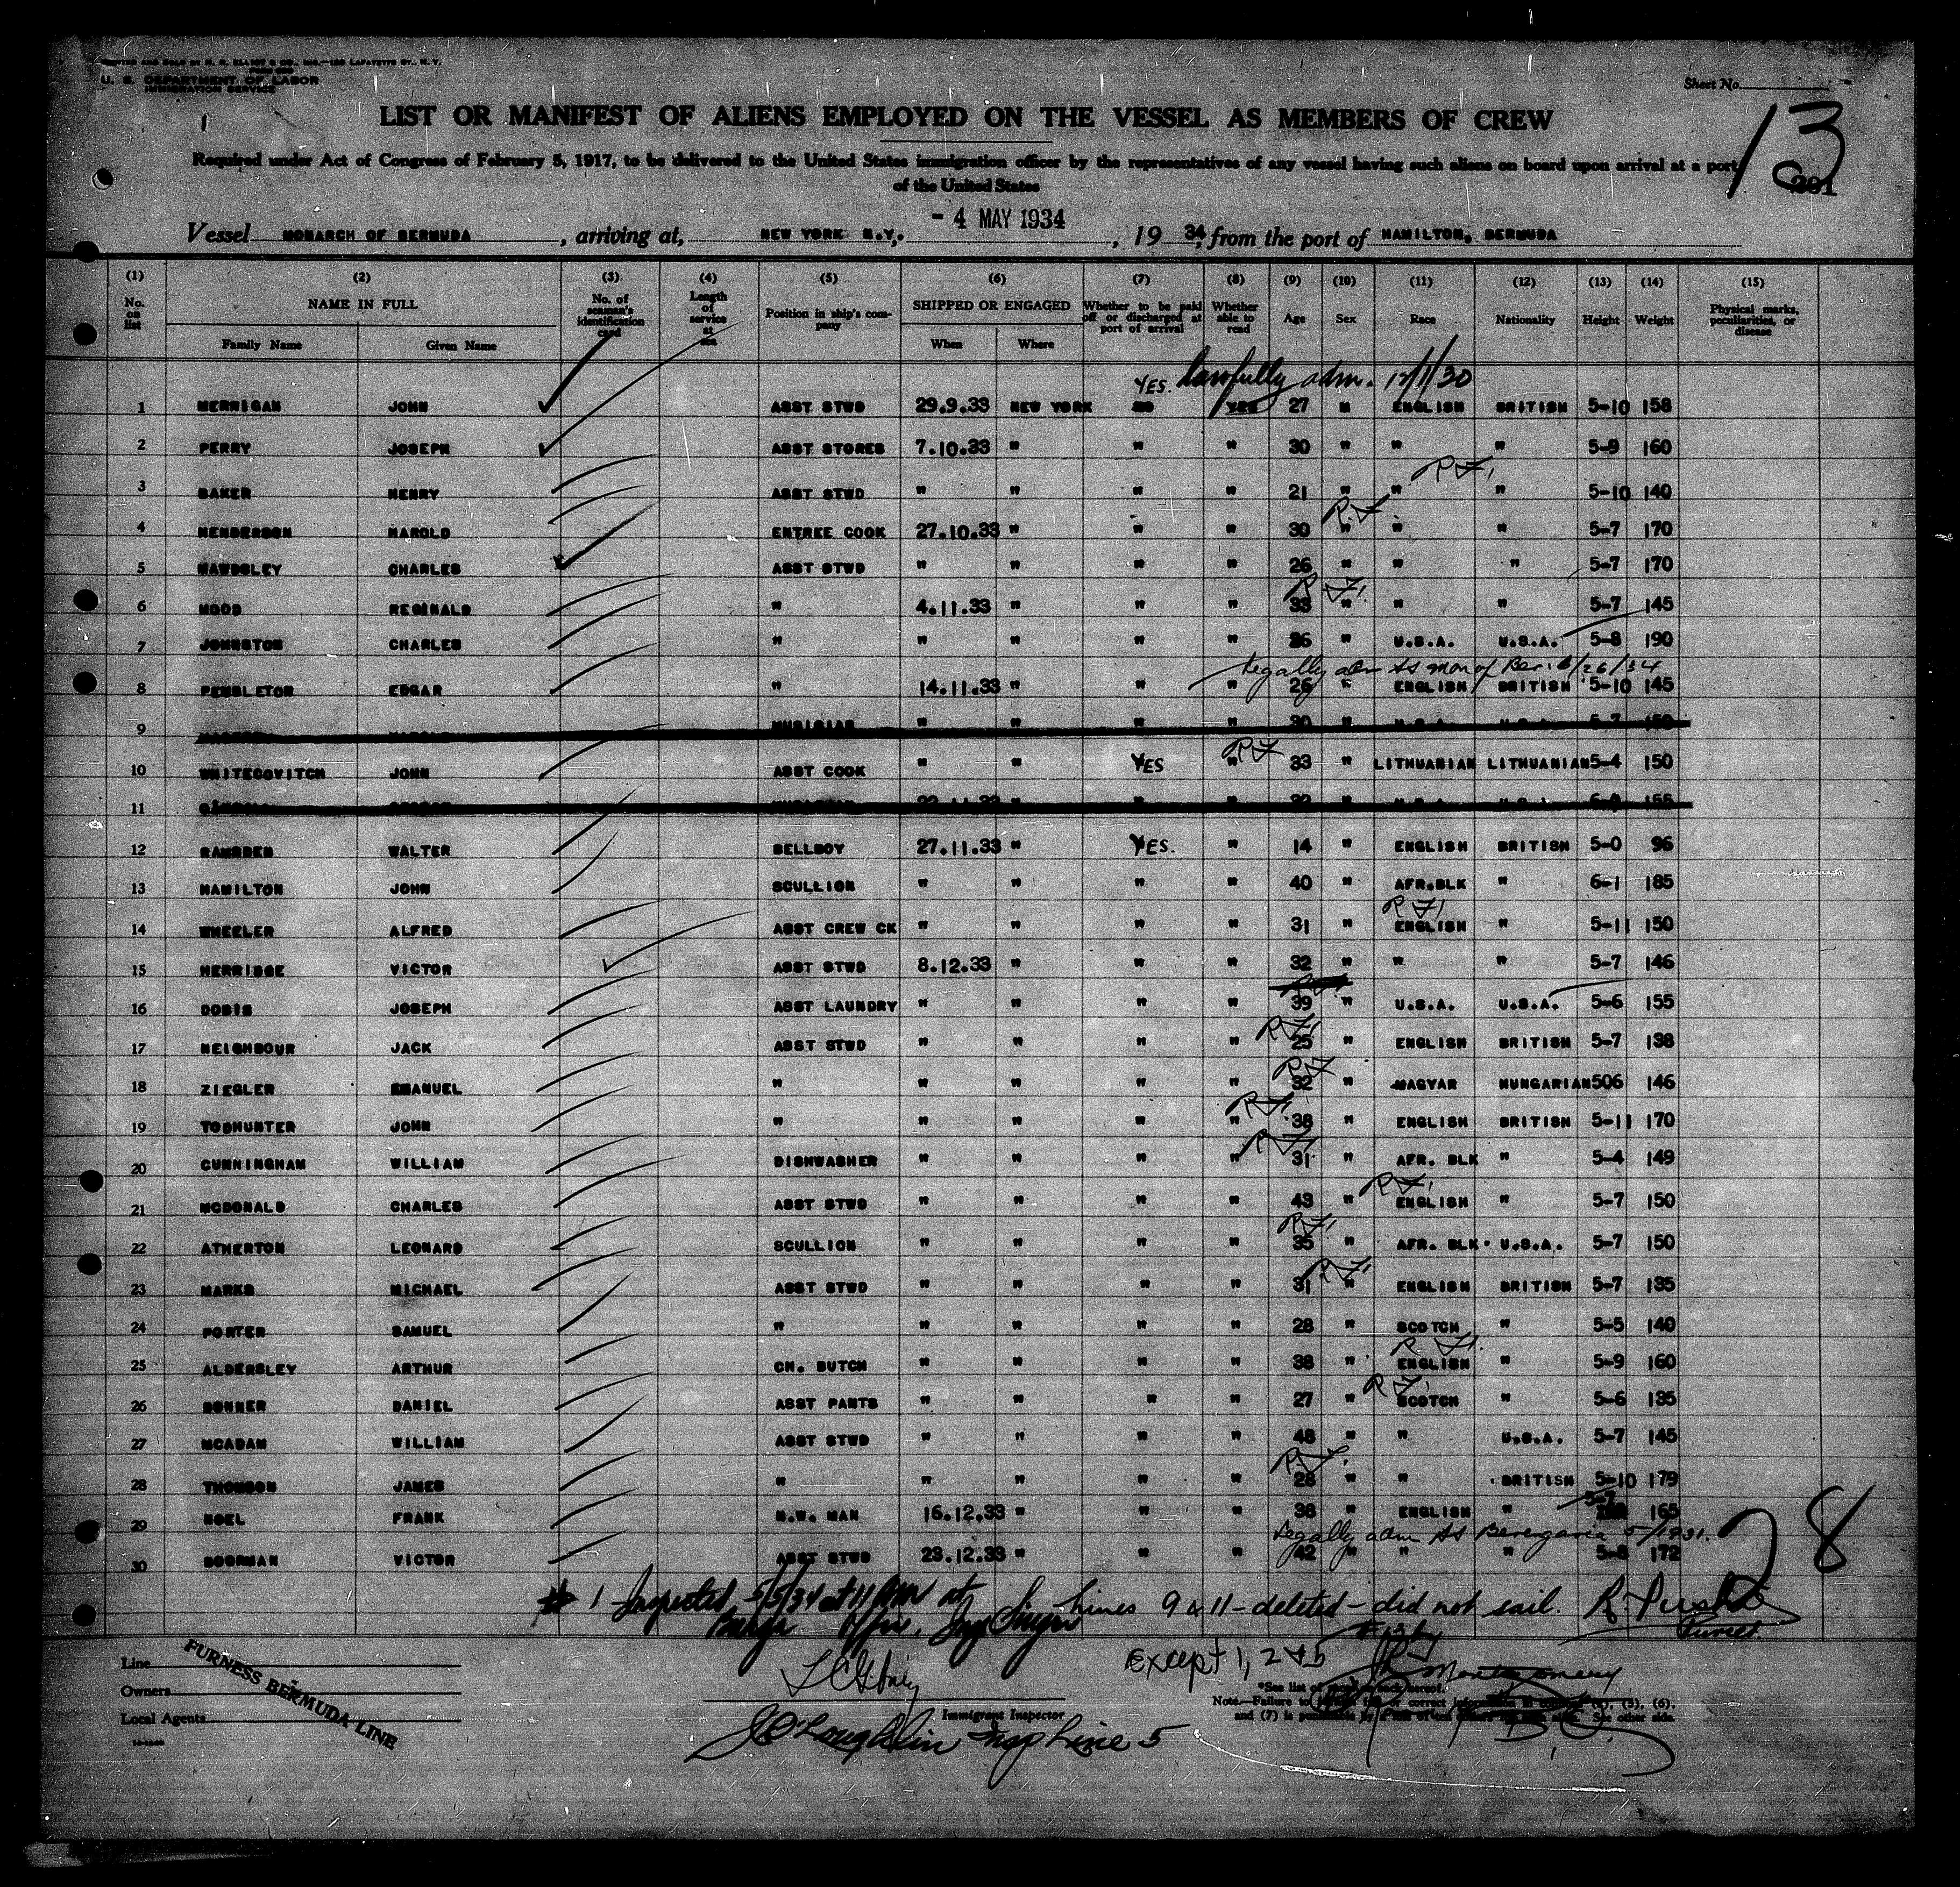 PRINTED AND SOLD BY M. R. ELLIOT & CO., INC.—128 LAFAYETTE ST., N. Y.
U. S. DEPARTMENT OF LABOR
IMMIGRATION SERVICE
Sheet No.
13
LIST OR MANIFEST OF ALIENS EMPLOYED ON THE VESSEL AS MEMBERS OF CREW
Required under Act of Congress of February 5, 1917, to be delivered to the United States immigration officer by the representatives of any vessel having such aliens on board upon arrival at a port
of the United States
201
- 4 MAY 1934
Vessel MONARCH OF BERMUDA, arriving at, NEW YORK N.Y., 19 34, from the port of HAMILTON, BERMUDA
(1) (2) (3) (4) (5) (6) (7) (8) (9) (10) (11) (12) (13) (14) (15)
No. on list NAME IN FULL Family Name Given Name No. of seaman's identification card Length of service at sea Position in ship's company SHIPPED OR ENGAGED When Where Whether to be paid off or discharged at port of arrival Whether able to read Age Sex Race Nationality Height Weight Physical marks, peculiarities, or disease
YES. lawfully adm. 12/1/30
1 MERRIGAN JOHN ASST STWD 29.9.33 NEW YORK NO YES 27 M ENGLISH BRITISH 5-10 158
2 PERRY JOSEPH ASST STORES 7.10.33 " " " 30 " " " 5-9 160
R.F.
3 BAKER HENRY ASST STWD " " " " 21 " " " 5-10 140
R.F.
4 HENDERSON HAROLD ENTREE COOK 27.10.33 " " " 30 " " " 5-7 170
5 MAWDSLEY CHARLES ASST STWD " " " " 26 " " " 5-7 170
R.F.
6 HOOD REGINALD " 4.11.33 " " " 33 " " " 5-7 145
7 JOHNSTON CHARLES " " " " " 26 " U.S.A. U.S.A. 5-8 190
Legally adm SS Mon of Ber.
8 PENDLETON EDGAR " 14.11.33 " " " 26 " ENGLISH BRITISH 5-10 145
9 MUSICIAN " " " " 30 "
R.F.
10 WHITECOVITCH JOHN ASST COOK " " YES " 33 " LITHUANIAN LITHUANIAN 5-4 150
11
12 RAMSDEN WALTER BELLBOY 27.11.33 " YES. " 14 " ENGLISH BRITISH 5-0 96
13 HAMILTON JOHN SCULLION " " " " 40 " AFR.BLK " 6-1 185
R.F.
14 WHEELER ALFRED ASST CREW CK " " " " 31 " ENGLISH " 5-11 150
15 HERRIDGE VICTOR ASST STWD 8.12.33 " " " 32 " " " 5-7 146
16 DOBIS JOSEPH ASST LAUNDRY " " " " 39 " U.S.A. U.S.A. 5-6 155
R.F.
17 NEIGHBOUR JACK ASST STWD " " " " 25 " ENGLISH BRITISH 5-7 138
R.F.
18 ZIEGLER EMANUEL " " " " " 32 " MAGYAR HUNGARIAN 506 146
R.F.
19 TODHUNTER JOHN " " " " " 38 " ENGLISH BRITISH 5-11 170
R.F.
20 CUNNINGHAM WILLIAM DISHWASHER " " " " 31 " AFR. BLK " 5-4 149
R.F.
21 MCDONALD CHARLES ASST STWD " " " " 43 " ENGLISH " 5-7 150
R.F.
22 ATHERTON LEONARD SCULLION " " " " 35 " AFR. BLK. U.S.A. 5-7 150
R.F.
23 MARKS MICHAEL ASST STWD " " " " 31 " ENGLISH BRITISH 5-7 135
24 PORTER SAMUEL " " " " " 28 " SCOTCH " 5-5 140
R.F.
25 ALDERSLEY ARTHUR CH. BUTCH " " " " 38 " ENGLISH " 5-9 160
R.F.
26 BONNER DANIEL ASST PANTS " " " " 27 " SCOTCH " 5-6 135
27 MCADAM WILLIAM ASST STWD " " " " 48 " " U.S.A. 5-7 145
R.F.
28 THOMSON JAMES " " " " " 28 " " BRITISH 5-10 179
29 NOEL FRANK N.W. MAN 16.12.33 " " " 38 " ENGLISH " 5-7 165
Legally adm SS Berengaria
30 BOORMAN VICTOR ASST STWD 23.12.33 " " " 42 " " " 5-8 172
28
# 1 Inspected 5/5/34 at 11 AM at
Barge Office, Insp Singer
Lines 9 & 11 - deleted - did not sail.
Purser.
Except 1, 2 & 5
Line
Owners
Local Agents
FURNESS BERMUDA LINE
Immigrant Inspector
J O'Loughlin Insp Line 5
*See list of races on back hereof.
Note.—Failure to furnish full or correct information in columns (5), (6),
and (7) is punishable by a fine of See other side.